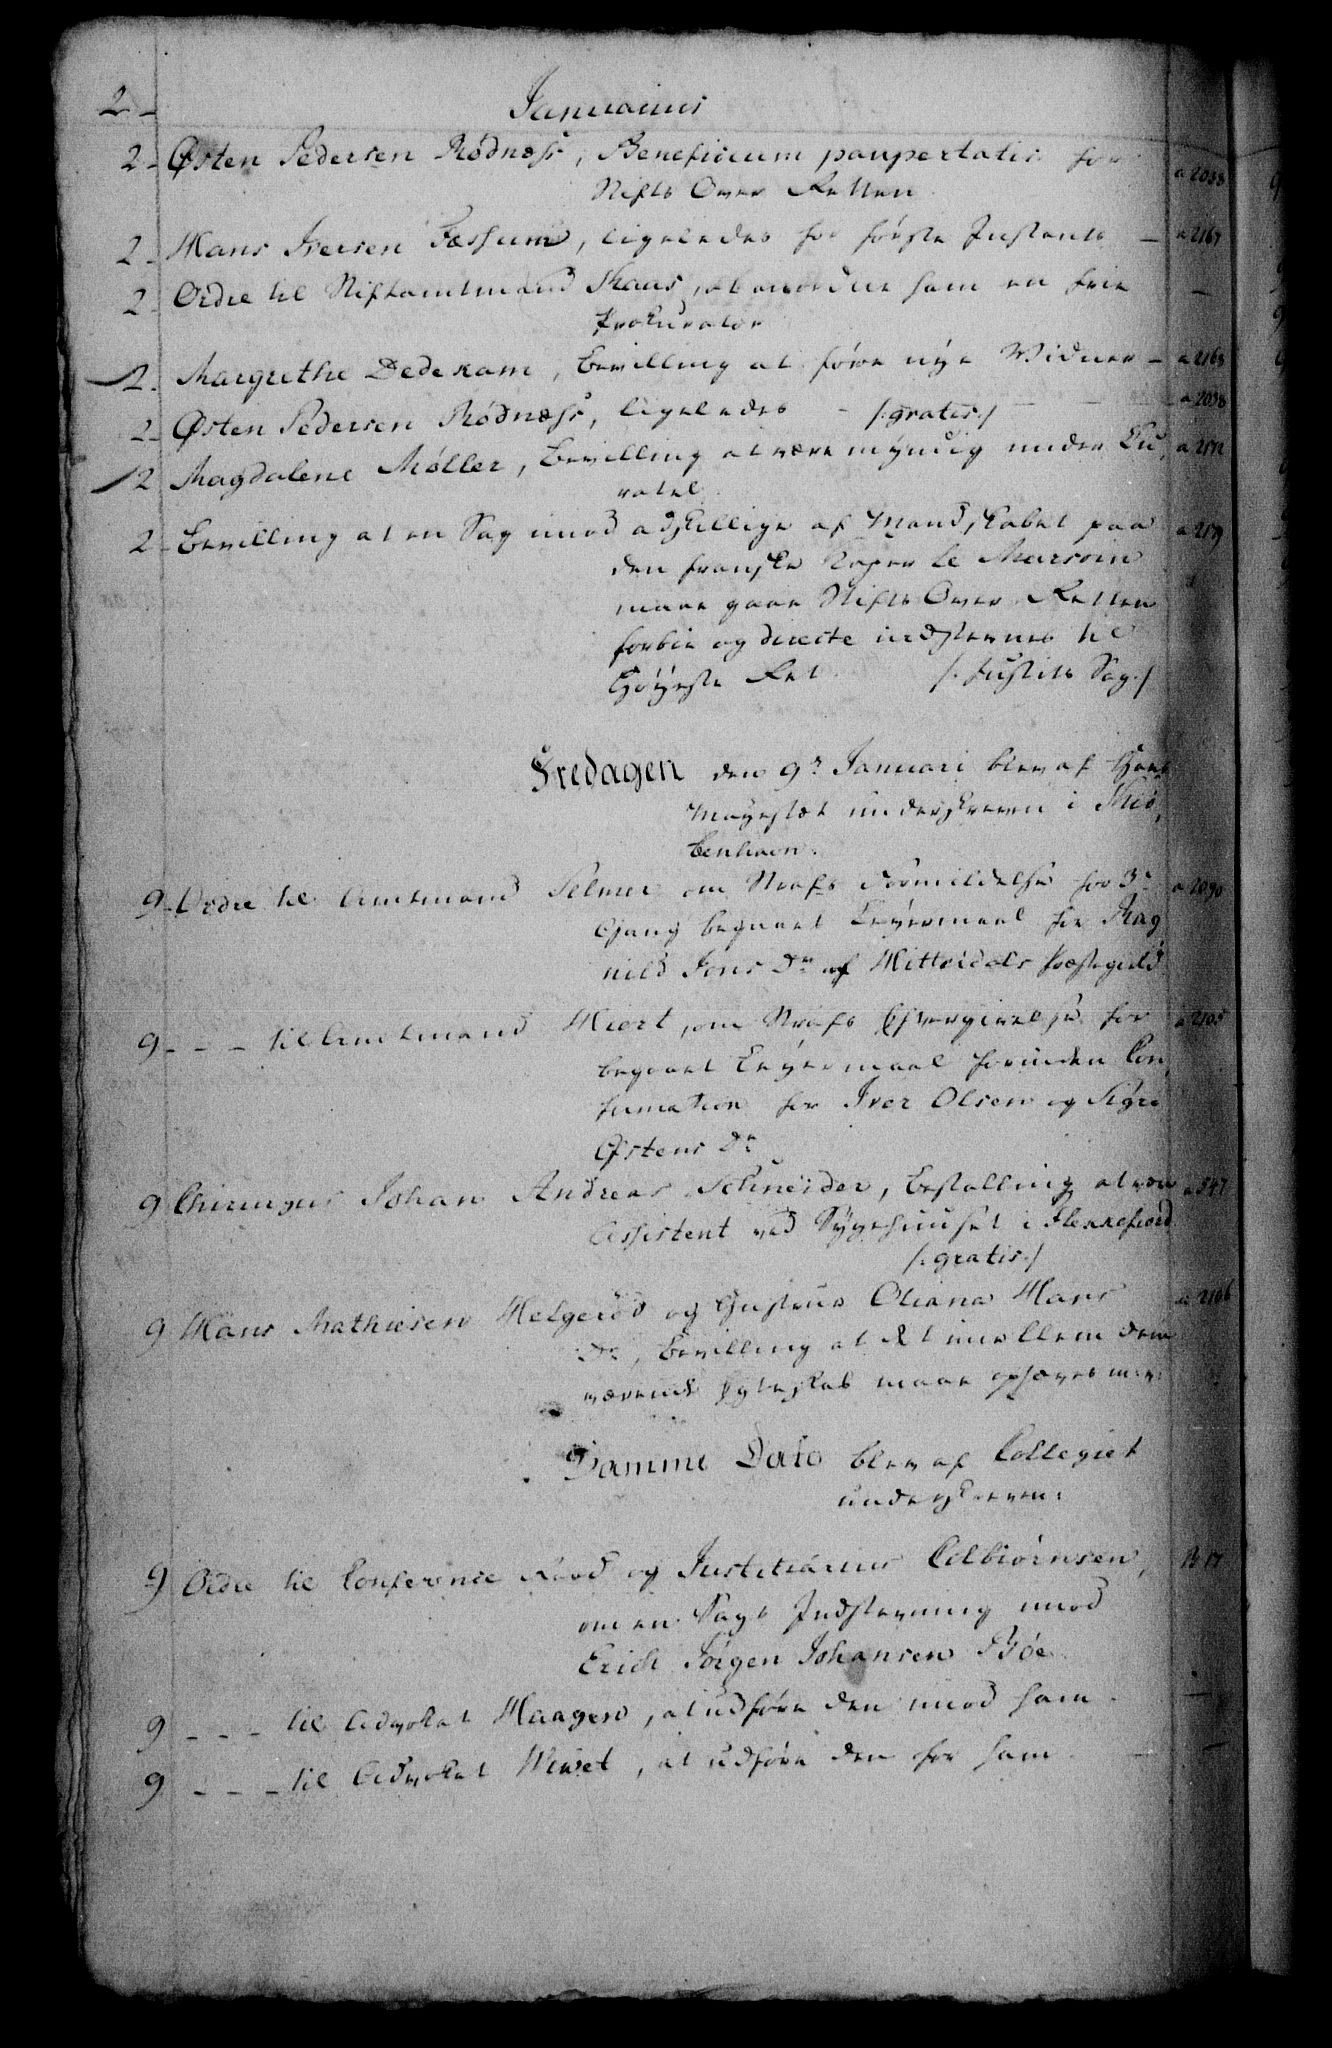 2 - Januarius
2 - Østen Pedersen Rødnæss, Beneficium paupertatis for a 2038
Stifts Over Retten
2 - Hans Iversen Fossum, ligeledes for første Instants - a 2167
2 - Ordre til Stiftamtmand Thaus, at anordne ham en frie -
Prokurator
2 - Margrethe Dedekam, Bevilling at føre nye Widner - a 2168
2 - Østen Pedersen Rødnæss, ligeledes - /:gratis:/ - - a 2038
2 Magdalene Møller, Bevilling at være myndig under Cu¸ a
ratel
2 - Bevilling at en Sag imod adskillige af Mandskabet paa a 2179
den franske Kaper le Marsoin
maae gaae Stifts Over Retten
forbie og directe indstevnes til
Høyeste Ret. /:Justits Sag:/
Fredagen den 9de Januari blev af Hans
Mayestæt underskreven i Kiø¸
benhavn.
9 - Ordre til Amtmand Selmer om Strafs Formildelse for 3de a 2090
Gang begaaet Leyermaal for Rag
nild Jons Dr af Hitterdals Præstegield
9 - - - til Amtmand Hiort, om Strafs Eftergivelse for a 2105
begaaet Leyermaal forinden Con¸
firmation for Iver Olsen og Sigri
Østens Dr
9 Chirurgus Johan Andreas Schneider, Bestalling at være a 547
Assistent ved Sygehuuset i Flekkefiord
/:gratis:/
9 Hans Mathiesen Helgerød og Hustrue Oliana Hans a 2106
Dr, Bevilling at det imellem dem
værende Egteskab maae ophæves m: v:
Samme Dato blev af Collegiet
underskreven:
9 Ordre til Conference Raad og Justitiarius Colbiørnsen, B 17
om en Sags Indstevning imod
Erich Jørgen Johansen Bøe
9 - - - til Advokat Haagen, at udføre den imod ham. -
9 - - - til Advokat , at udføre den for ham - -